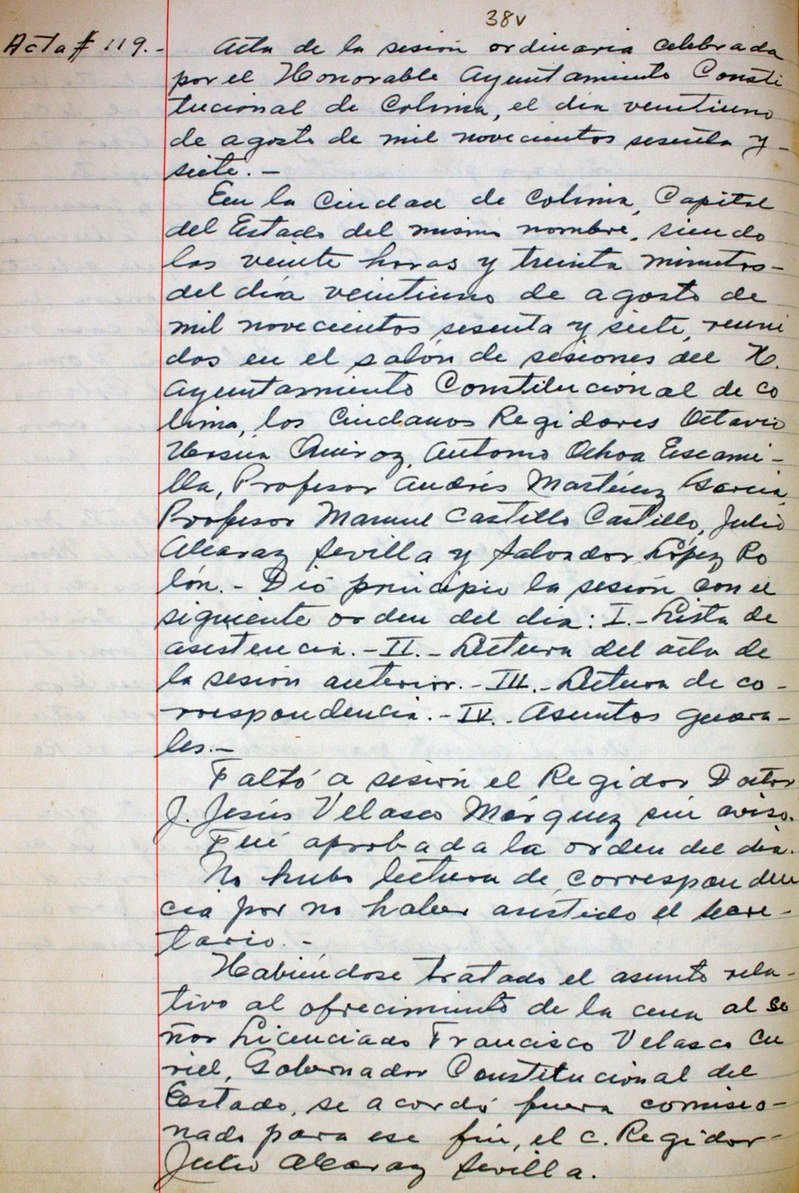 38v
Acta # 119.-
Acta de la sesión ordinaria celebrada
por el Honorable Ayuntamiento Consti
tucional de Colima, el día veintiuno
de agosto de mil novecientos sesenta y-
siete.-
En la Ciudad de Colima, Capital
del Estado del mismo nombre, siendo
las veinte horas y treinta minutos-
del día veintiuno de agosto de
mil novecientos sesenta y siete, reuni
dos en el salón de sesiones del H.
Ayuntamiento Constitucional de Co
lima, los Ciudanos Regidores Octavio
Ursúa Quiroz, Antonio Ochoa Escami-
lla, Profesor Andrés Martínez García,
Profesor Manuel Castillo Castillo, Julio
Alcaraz Sevilla y Salvador López Ro
lón.- Dió principio la sesión con el
siguiente orden del día: I.- Lista de
asistencia.- II.- Lectura del acta de
la sesión anterior.- III.- Lectura de co-
rrespondencia.- IV.- Asuntos genera-
les.-
Faltó a sesión el Regidor Doctor
J. Jesús Velasco Márquez sin aviso.
Fué aprobada la orden del día.
No hubo lectura de corresponden
cia por no haber asistido el Secre-
tario.-
Habiéndose tratado el asunto rela-
tivo al ofrecimiento de la cena al se
ñor Licenciado Francisco Velasco Cu
riel, Gobernador Constitucional del
Estado, se acordó fuera comisio-
nado para ese fin, el C. Regidor-
Julio Alcaraz Sevilla.